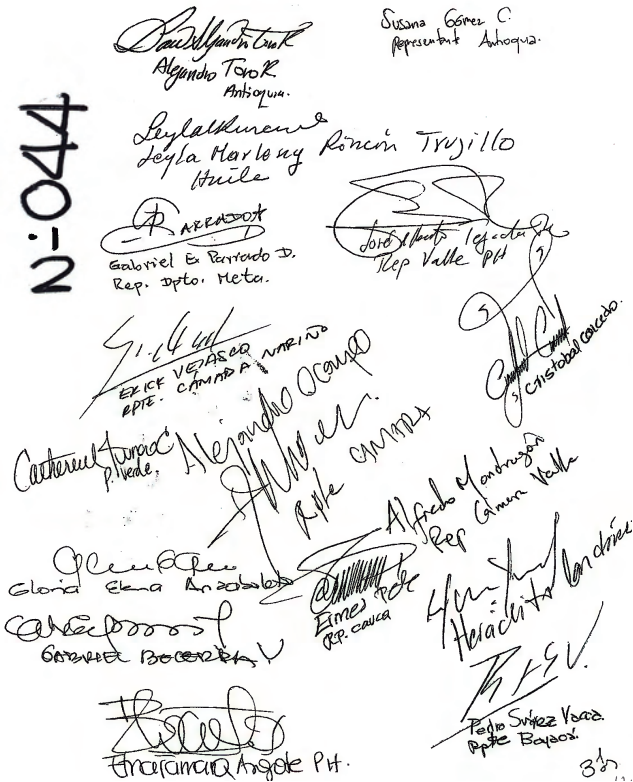 Alejandro Toro R
Antioquia.
Susana Gómez C.
Representante Antioquia.
Leyla Marleny Rincón Trujillo
Huila
PARRADO
Gabriel E. Parrado D.
Rep. Dpto. Meta.
Jorge Alberto
Rep Valle PH
N:044
ERICK VELASCO
RPTE. CAMARA NARIÑO
Cristobal Caicedo.
Catherine Juvinao C
P. Verde.
Alejandro Ocampo
Rpte CAMARA
Alfredo Mondragón
Rep Cámara Valle
Gloria Elena Arizabaleta
Ermes Pete
RP. Cauca
Heráclito Landinez
GABRIEL BECERRA Y
Pedro Suárez Vacca.
Rpte Boyacá.
Etna Tamara Argote PH.